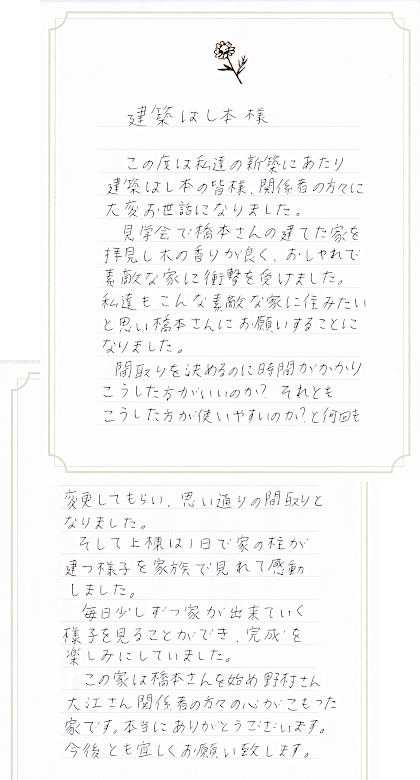 建築はし本様
この度は私達の新築にあたり
建築はし本の皆様、関係者の方々に
大変お世話になりました。
見学会で橋本さんの建てた家を
拝見し木の香りが良く、おしゃれで
素敵な家に衝撃を受けました。
私達もこんな素敵な家に住みたい
と思い橋本さんにお願いすることに
なりました。
間取りを決めるのに時間がかかり
こうした方がいいのか?それとも
こうした方が使いやすいのか?と何回も
変更してもらい、思い通りの間取りと
なりました。
そして上棟は1日で家の柱が
建つ様子を家族で見れて感動
しました。
毎日少しずつ家が出来ていく
様子を見ることができ、完成を
楽しみにしていました。
この家は橋本さんを始め野村さん
大江さん関係者の方々の心がこもった
家です。本当にありがとうございます。
今後とも宜しくお願い致します。